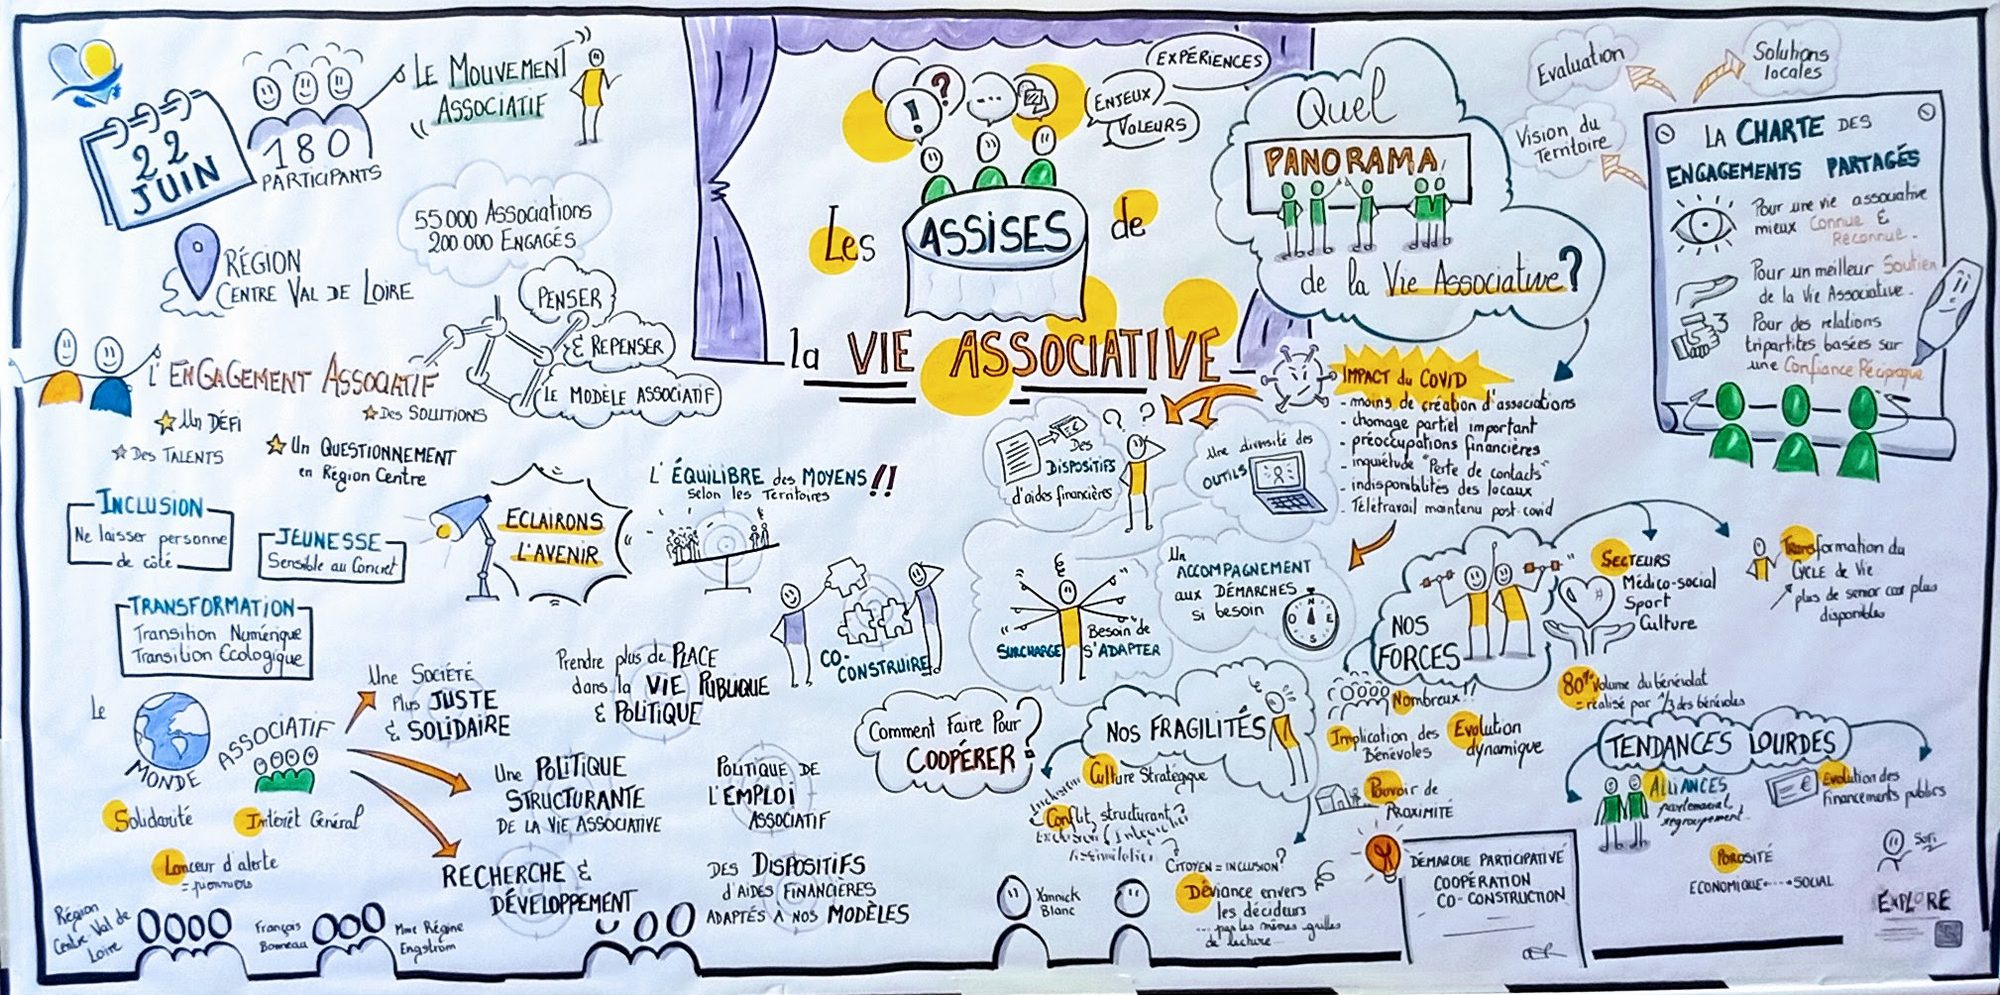 22
JUIN
180
PARTICIPANTS
LE MOUVEMENT
ASSOCIATIF
55000 Associations
200.000 ENGAGÉS
RÉGION
CENTRE VAL DE LOIRE
L'ENGAGEMENT ASSOCIATIF
Un DÉFI
Des SOLUTIONS
Des TALENTS
Un QUESTIONNEMENT
en Région Centre
PENSER
& REPENSER
LE MODÈLE ASSOCIATIF
INCLUSION
Ne laisser personne
de côté
JEUNESSE
Sensible au Concret
TRANSFORMATION
Transition Numérique
Transition Ecologique
ECLAIRONS
L'AVENIR
L'ÉQUILIBRE des MOYENS !!
selon les Territoires
CO-
CONSTRUIRE
Le
MONDE
ASSOCIATIF
Solidarité
Intérêt Général
Lanceur d'alerte
= pionniers
Une SOCIÉTÉ
Plus JUSTE
& SOLIDAIRE
Prendre plus de PLACE
dans la VIE PUBLIQUE
& POLITIQUE
Une POLITIQUE
STRUCTURANTE
DE LA VIE ASSOCIATIVE
POLITIQUE DE
L'EMPLOI
ASSOCIATIF
RECHERCHE &
DÉVELOPPEMENT
DES DISPOSITIFS
D'AIDES FINANCIÈRES
ADAPTÉS A NOS MODÈLES
Région
Centre-Val de
Loire
François
Bonneau
Mme Régine
Engström
EXPÉRIENCES
ENJEUX
VALEURS
! ? ...
Les ASSISES de
la VIE ASSOCIATIVE
Quel
PANORAMA
de la Vie Associative ?
IMPACT du COVID
- moins de création d'associations
- chomage partiel important
- préoccupations financières
- inquiétude "Perte de contacts"
- indisponibilités des locaux
- Télétravail maintenu post-covid
Des
DISPOSITIFS
d'aides financières
? ?
Une diversité des
OUTILS
Un
ACCOMPAGNEMENT
AUX DÉMARCHES
si besoin
N
O E
S
SURCHARGE
Besoin de
S'ADAPTER
Comment Faire Pour
COOPÉRER ?
NOS FRAGILITÉS
Culture Stratégique
Inclusion
Conflit structurant ?
CITOYEN = INCLUSION ?
Déviance envers
les décideurs
... pas les mêmes grilles
de lecture
Yannick
Blanc
NOS
FORCES
Nombreux !!
Implication des
Bénévoles
Evolution
dynamique
Pouvoir de
PROXIMITÉ
SECTEURS
Médico-social
Sport
Culture
Transformation du
CYCLE de Vie
plus de senior car plus
disponibles
80% Volume du bénévolat
= réalisé par 1/3 des bénévoles
TENDANCES LOURDES
ALLIANCES
partenariat,
regroupement
€
Evolution des
Financements publics
POROSITÉ
ECONOMIQUE SOCIAL
DÉMARCHE PARTICIPATIVE
COOPÉRATION
CO-CONSTRUCTION
Evaluation
Solutions
locales
Vision du
Territoire
LA CHARTE DES
ENGAGEMENTS PARTAGÉS
Pour une vie associative
mieux Connue &
Reconnue.
Pour un meilleur Soutien
de la Vie Associative.
Pour des relations
tripartites basées sur
une Confiance Réciproque
EXPLORE